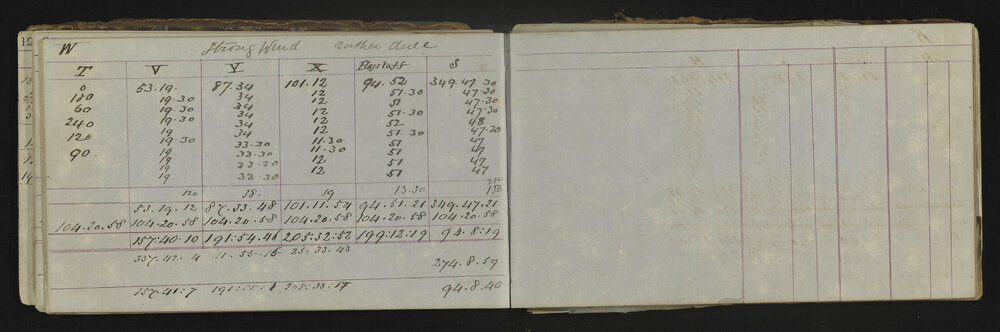 W Strong Wind rather dull
T V Y X Flagstaff S
0 53.19. 87.34 101.12 94.52 349.47.30
180 19.30 34 12 51.30 47.30
60 19.30 34 12 51 47.30
240 19.30 34 12 51.30 47.30
120 19.30 34 12 52 48
90 19 34 12 51.30 47.30
19.30 33.30 11.30 51 47
19 33.30 11.30 51 47
19 33.30 12 51 47
19 33.30 12 51 47
120 38. 19 13.30 150
53.19.12 87.33.48 101.11.54 94.51.21 349.47.21
104.20.58 104.20.58 104.20.58 104.20.58 104.20.58 104.20.58
157:40.10 191:54.46 205:32:52 199:12:19 94.8:19
337.42.4 11.55.16 25.33.43
274.8.59
157.41:7 205:33:17
94.8.40